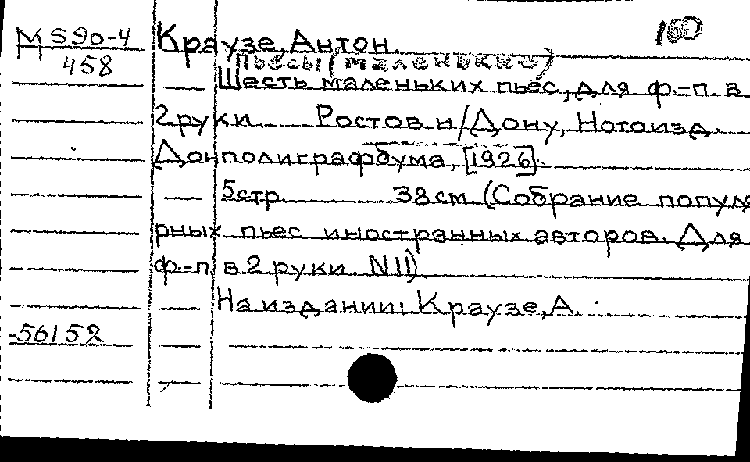 MS90-4 Краузе, Антон. 160
458 Пьесы (маленькие)
Шесть маленьких пьес, для ф.-п. в
2 руки Ростов н/Дону, Нотоизд.
Донполиграфбума, [1926].
5 стр. 33 см (Собрание популя
рных пьес иностранных авторов. Для
ф-п в 2 руки N 11)
На издании: Краузе, А.
56152